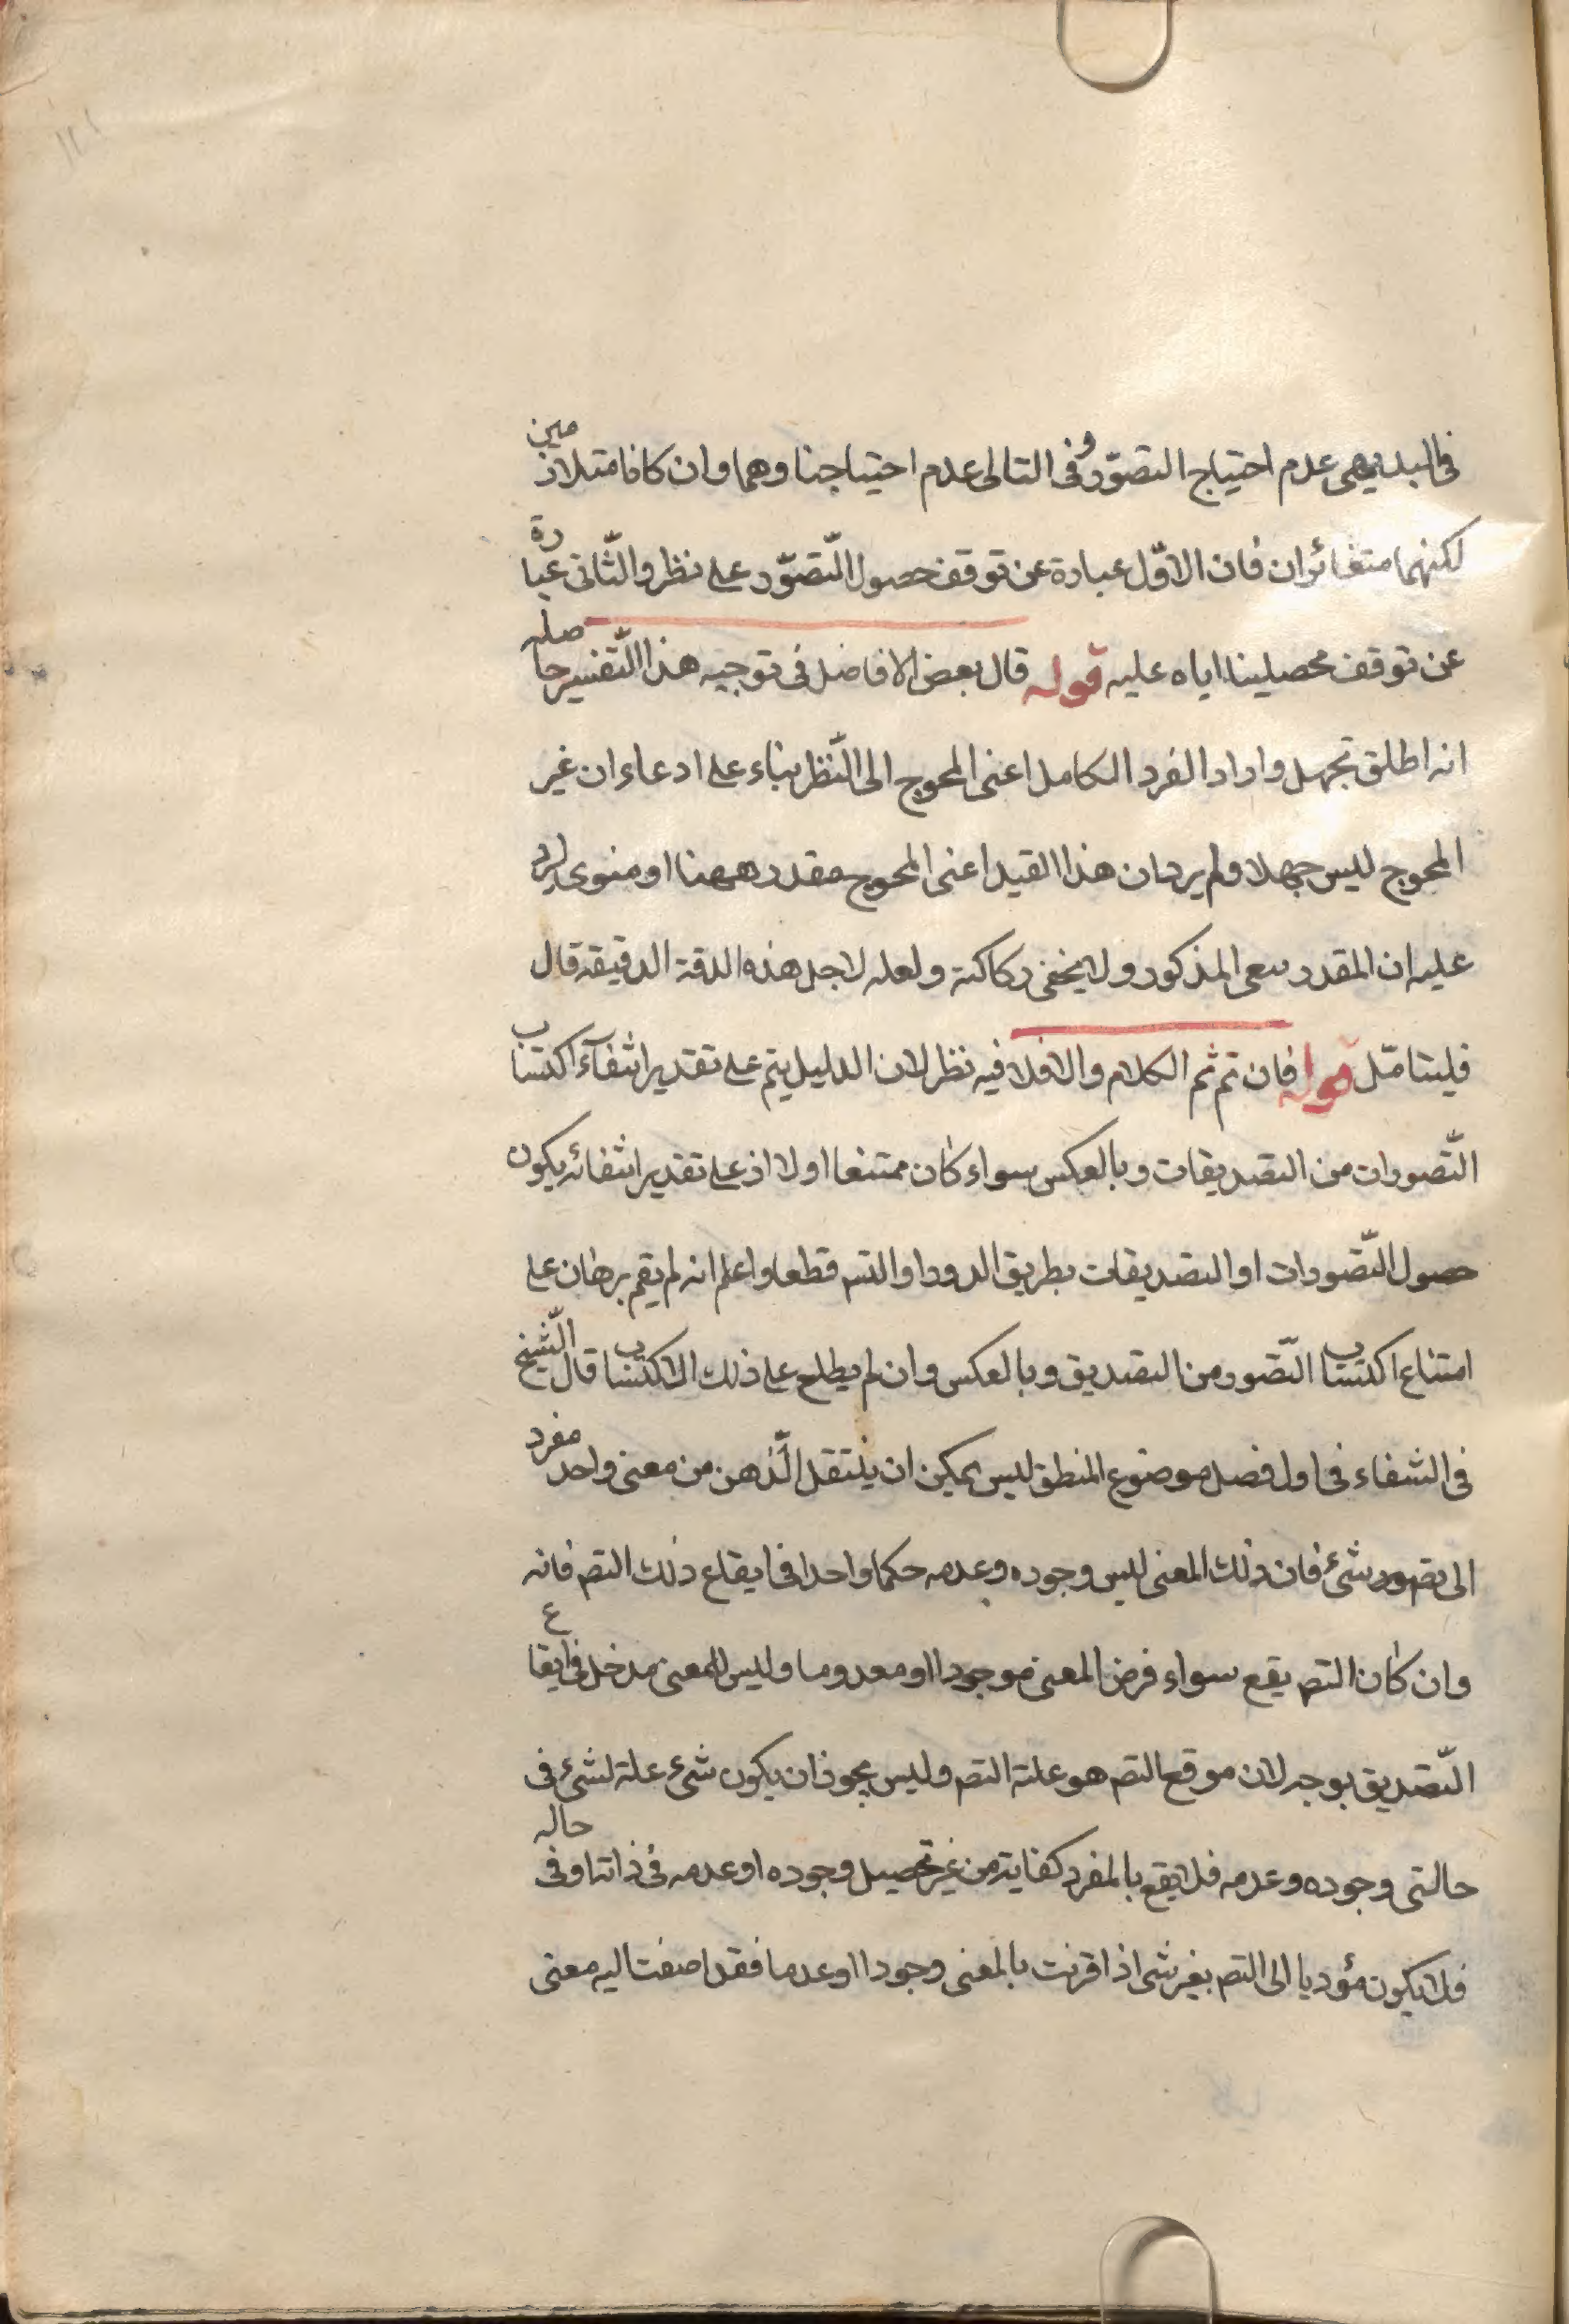 فى البديهى عدم احتياج التصوّر وفى التالى عدم احتياجنا وهما وان كانا متلازمين
لكنهما متغائران فان الاوّل عبارة عن توقف حصول التّصوّر على نظر والثّانى عبارة
عن توقف محصيلنا اياه عليه قوله قال بعض الافاضل فى توجيه هذا التّفسير حاصله
انه اطلق تجهل واراد الفرد الكامل اعنى المحوج الى النّظر بناء على ادعاء ان غير
المحوج ليس جهلا ولم يرد ان هذا القيد اعنى المحوج مقدر ههنا او منوى ليرد
عليه ان المقدر المذكور ولا يخفى ركاكته ولعله لاجل هذه الدقة الدقيقه قال
فليتامّل قوله فان تم ثم الكلام والا فلا فيه نظر لان الدليل يتم على تقدير انتفآء اكتساب
التّصورات من التصديقات وبالعكس سواء كان ممتنعا اولا اذ على تقدير انتفائه يكون
حصول التّصورات او التصديقات بطريق الدور او التس قطعا واعلم انه لم يقم برهان على
امتناع اكتساب التّصور من التصديق وبالعكس وان لم يطلع على ذلك الاكتساب قال الشّيخ
فى الشفاء فى اول فصل موضوع المنطق ليس يمكن ان ينتقل الذّهن من معنى واحد مفرد
الى تصور شىء فان ذلك المعنى ليس وجوده وعدمه حكما واحدا فى ايقاع ذلك التص فانه
وان كان التص يقع سواء فرض المعنى موجودا او معدوما وليس للمعنى مدخل فى ايقاع
التّصديق بوجه لان موقع التص هو علته التص وليس يجوز ان يكون شىء علة لشىء فى
حالتى وجوده وعدمه فلا يقع بالمفرد كفاية من غير تحصيل وجوده او عدمه فى ذاته او فى حاله
فلا يكون مؤديا الى التص بغير شى اذا قرنت بالمعنى وجودا او عدما فقد اضفت اليه معنى